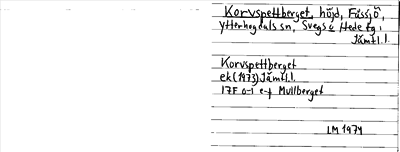 Korvspettberget, höjd, Fåssjö,
Ytterhogdals sn, Svegs o Hede tg i
Jämtl.l.
Korvspettberget
ek(1973)Jämtl.l.
17F o-i e-f Mullberget
LM 1974